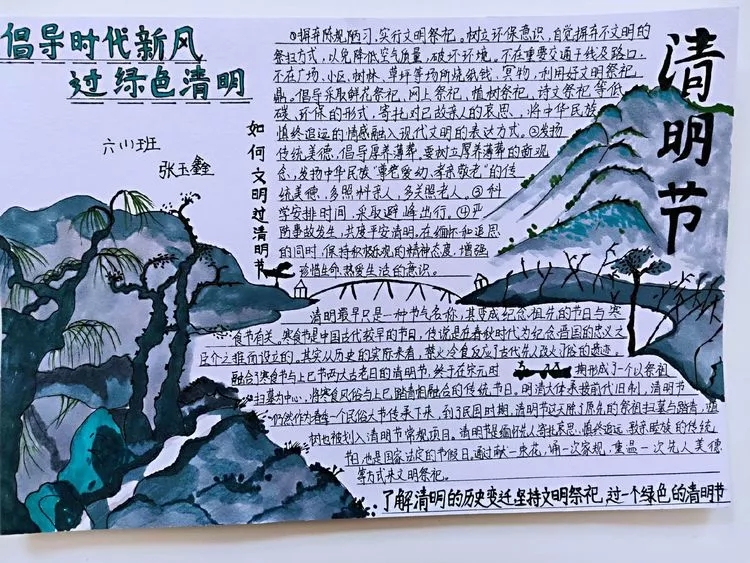 倡导时代新风
过绿色清明
六(1)班
张玉鑫
清明节
如何文明过清明节
①摒弃陈规陋习,实行文明祭祀。树立环保意识,自觉摒弃不文明的
祭扫方式,以免降低空气质量,破坏环境。不在重要交通干线及路口,
不在广场,小区,树林,草坪等场所烧纸钱,冥物,利用好文明祭祀
鼎。倡导采取鲜花祭祀,网上祭祀,植树祭祀,诗文祭祀等低
碳、环保的形式,寄托对已故亲人的哀思,将中华民族
慎终追远的情感融入现代文明的表达方式。②发扬
传统美德,倡导厚养薄葬。要树立厚养薄葬的新观
念,发扬中华民族“尊老爱幼、孝亲敬老”的传
统美德,多照料亲人,多关照老人。③科
学安排时间,采取避峰出行。④严
防事故发生,共度平安清明,在缅怀和追思
的同时,保持积极乐观的精神态度,增强
珍惜生命,热爱生活的意识。
清明最早只是一种节气名称,其变成纪念祖先的节日与寒
食节有关。寒食节是中国古代较早的节日,传说是在春秋时代为纪念晋国的忠义之
臣介之推而设立的。其实从历史的实际来看,禁火冷食反应了古代先人改火习俗的遗迹,
融合了寒食节与上巳节两大古老日的清明节,终于在宋元时期形成了一个以祭祖
扫墓为中心,将寒食风俗与上巳踏青相融合的传统节日。明清大体承接前代旧制,清明节
仍然作为春季一个民俗大节传承下来,到了民国时期,清明节这天除了原先的祭祖扫墓与踏青,植
树也被划入清明节常规项目。清明节是缅怀先人寄托哀思、慎终追远、敦亲睦族的传统
节日,也是国家法定的节假日。通过献一束花,诵一次家规,重温一次先人美德
等方式来文明祭祀。
了解清明的历史变迁,坚持文明祭祀,过一个绿色的清明节